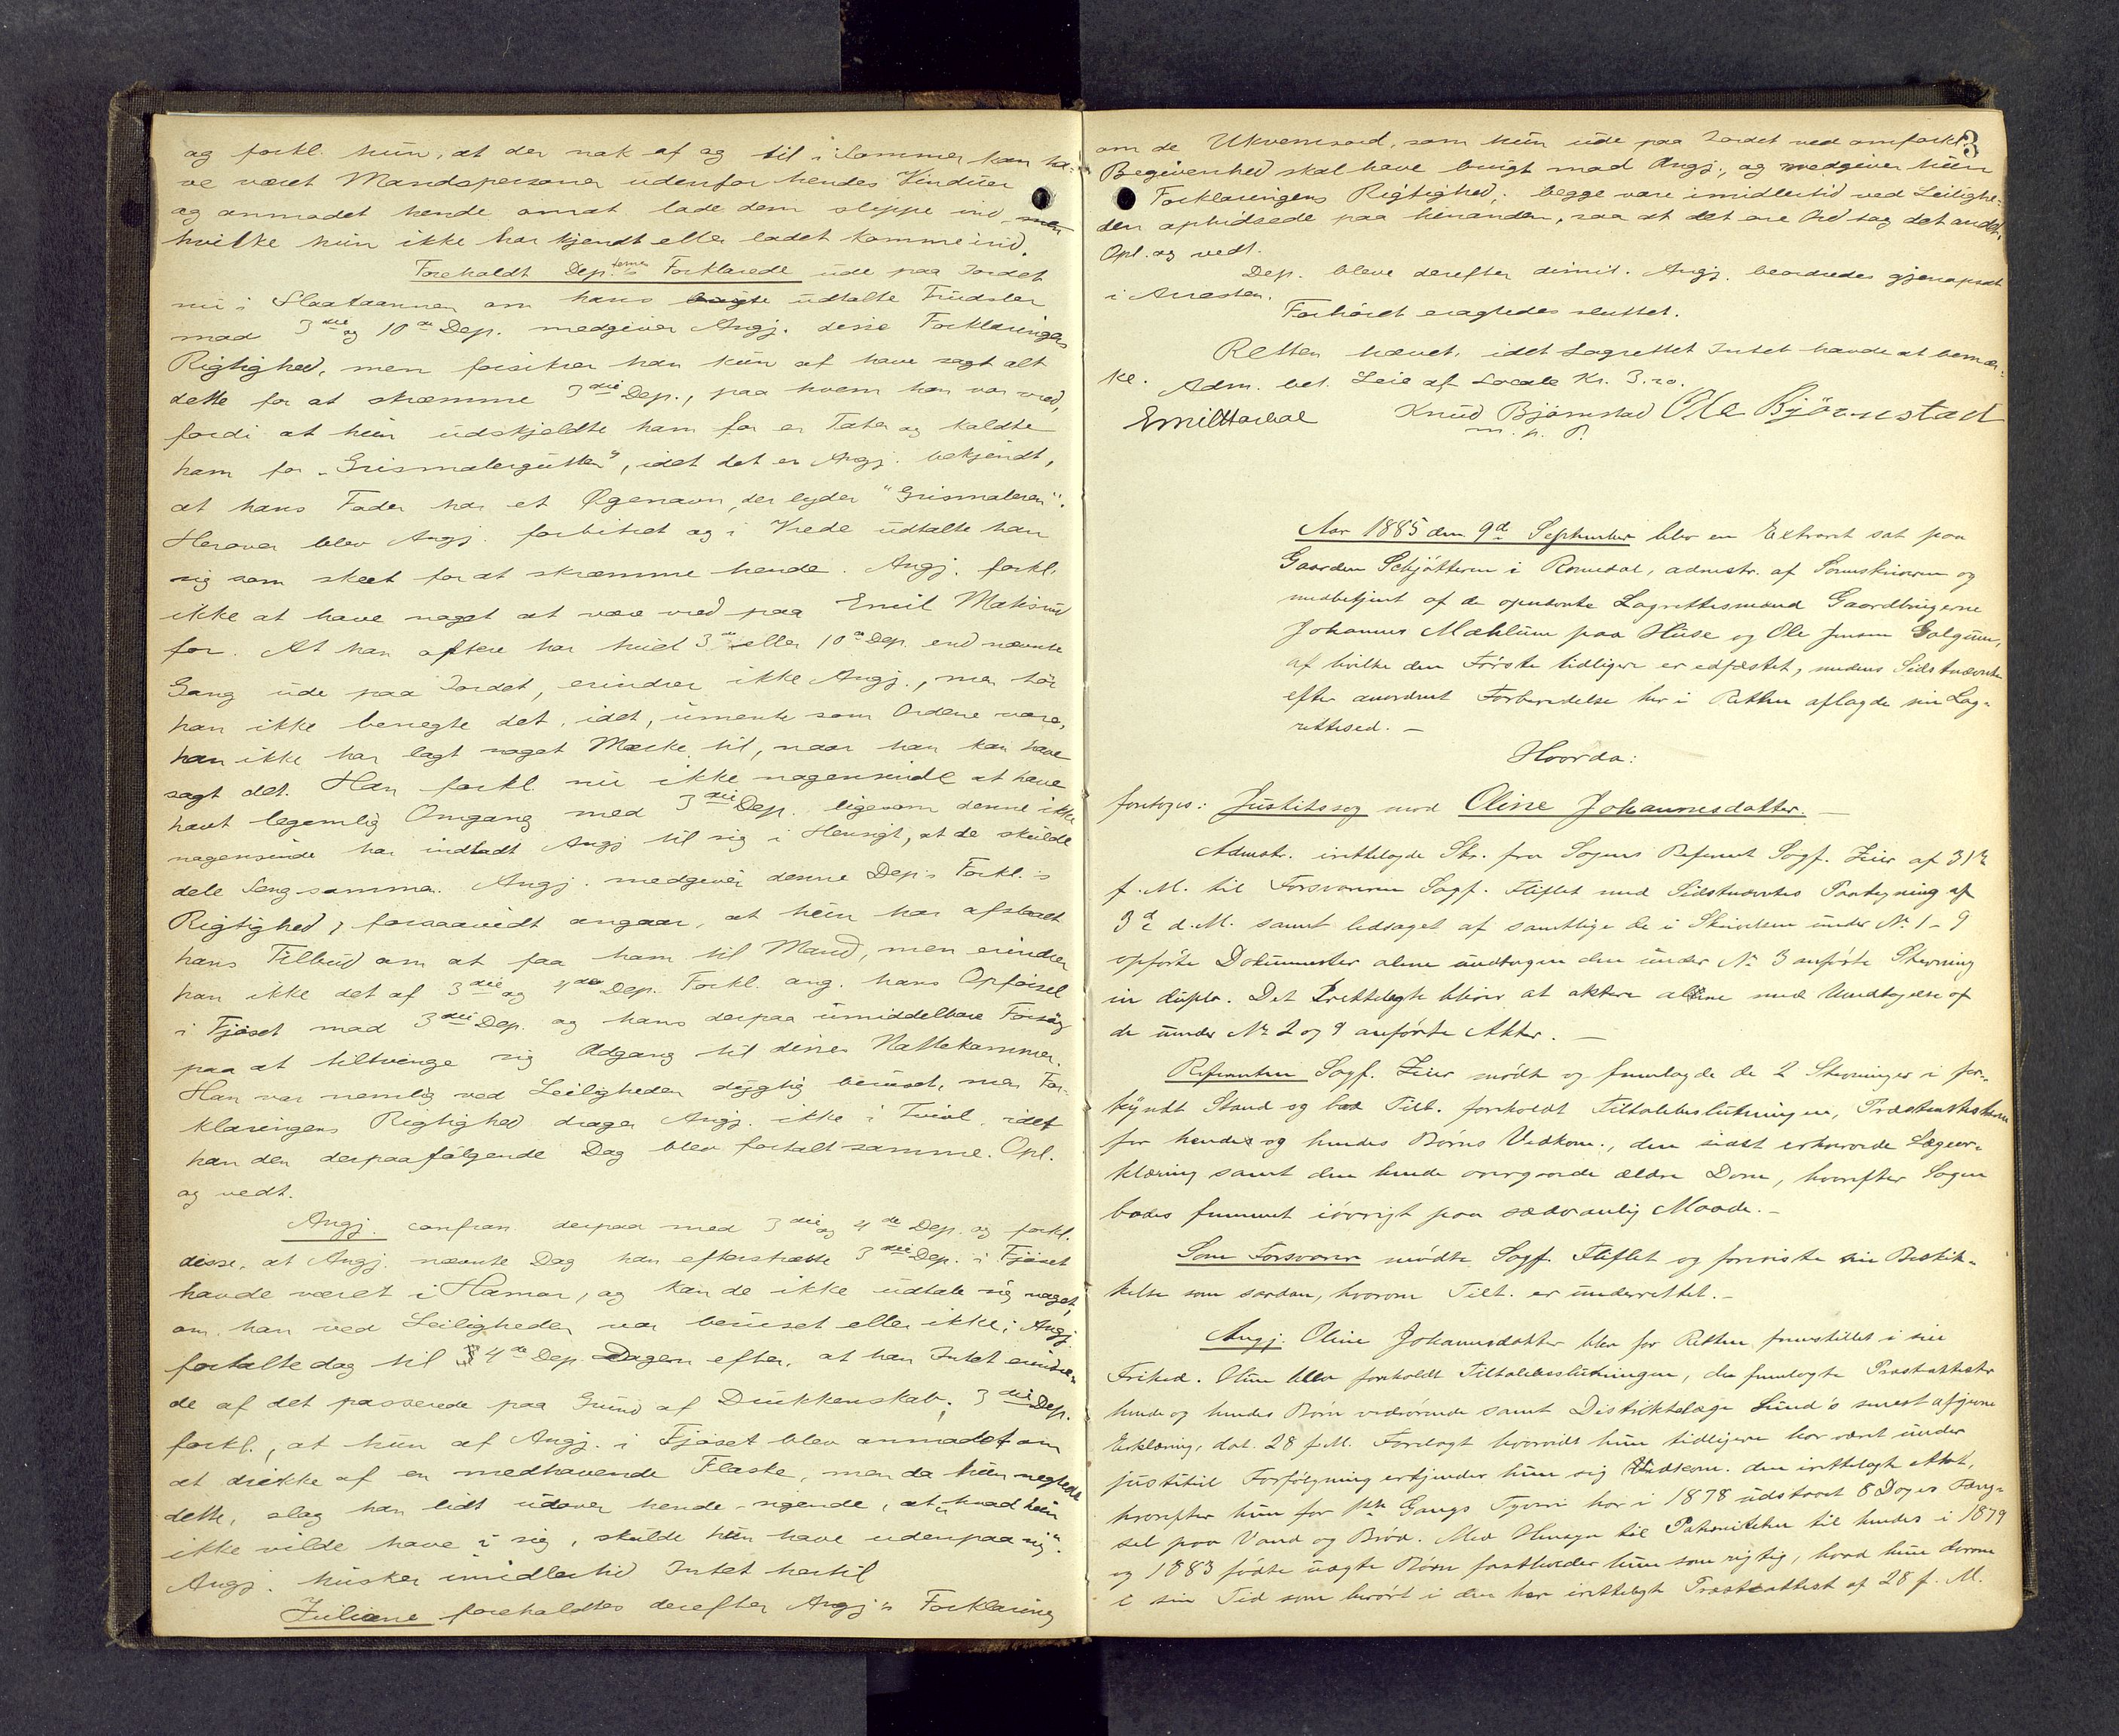 og forkl. hun, at der nok af og til i Sommer kan ha-
ve været Mandspersoner udenfor hendes Vinduer
og anmodet hende om at lade dem slippe ind men
hvilke hun ikke har kjendt eller ladet komme ind.
Foreholdt Dep.ternes Forklarede ude paa Jordet
nu i Slaataannen om hans udtalte Trudsler
mod 3die og 10de Dep. medgiver Angj. disse Forklaringers
Rigtighed, men forsikrer han kun at have sagt alt
dette for at skræmme 3die Dep., paa hvem han var vred,
fordi at hun udskjeldte ham for en Tater og kaldte
ham for "Grismalergutten", idet det er Angj. bekjendt,
at hans Fader har et Øgenavn, der lyder "Grismaleren".
Herover blev Angj. forbitret og i Vrede udtalte han
sig som skeet for at skræmme hende. Angj. forkl.
ikke at have noget at være vred paa Emil
for. At han oftere har truet 3die eller 10de Dep. end nævnte
Gang ude paa Jordet, erindrer ikke Angj., men tør
han ikke benegte det, idet, umente som Ordene vare,
han ikke har lagt noget Mærke til, naar han kan have
sagt det. Han forkl. nu ikke nogensinde at have
havt legemlig Omgang med 3die Dep. ligesom denne ikke
nogensinde har indladt Angj. til sig i Hensigt, at de skulde
dele Seng sammen. Angj. medgiver denne Dep's Forkl.'s
Rigtighed, forsaavidt angaar, at hun har afslaaet
hans Tilbud om at faa ham til Mand, men erindrer
han ikke det af 3die og 4de Dep. Forkl. ang. hans Opførsel
i Fjøset mod 3die Dep. og hans derpaa umiddelbare Forsøg
paa at tiltvinge sig Adgang til disses Nattekammer.
Han var nemlig ved Leiligheden dygtig beruset, men For-
klaringens Rigtighed drager Angj. ikke i Tvivl, idet
han den derpaafølgende Dag blev fortalt samme. Opl.
og vedt.
Angj. confron. derpaa med 3die og 4de Dep. og forkl.
disse, at Angj. nævnte Dag han efterstræbte 3die Dep. i Fjøset
havde været i Hamar, og kan de ikke udtale sig noget,
om han ved Leiligheden var beruset eller ikke; Angj.
fortalte dog til 4de Dep. Dagen efter, at han Intet erindre-
de af det passerede paa Grund af Drukkenskab. 3die Dep.
forkl., at hun af Angj. i Fjøset blev anmodet om
at drikke af en medhavende Flaske, men da hun negtede
dette, slog han lidt udover hende - sigende, at "hvad hun
ikke vilde have i sig, skulde hun have udenpaa sig".
Angj. husker imidlertid Intet hertil
Juliane foreholdtes derefter Angj's Forklaring
3
om de Ukvemsord, som hun ude paa Jordet ved omforkl.
Begivenhed skal have brugt mod Angj., og medgiver hun
Forklaringens Rigtighed; begge vare imidlertid ved Leilighe-
den ophidsede paa hinanden, saa at det ene Ord tog det andet.
Opl. og vedt.
Dep. bleve derefter dimit. Angj. beordredes gjenopsat
i Arresten.
Forhøret eragtedes sluttet.
Retten hævet, idet Lagrettet Intet havde at bemær-
ke. Adm. bet. Leie af Locale Kr. 3.20.
Knud Bjørnstad Ole Bjørnstad
m. p. P.
Aar 1885 den 9de September blev en Extraret sat paa
Gaarden Schjøtteren i Romedal, admstr. af Sorenskriveren og
medbetjent af de opnævnte Lagrettesmænd Gaardbrugerne
Johannes Mæhlum paa Huse og Ole Jensen
af hvilke den Første tidligere er edfæstet, medens Sidstnævnte
efter anordnet Forberedelse her i Retten aflagde sin Lag-
rettesed. -
Hvorda:
foretoges: Justitssag mod Oline Johannesdatter. -
Admstr. irettelagde Skr. fra Sagens Referent Sagf. Zeier af 31te
f. M. til Forsvareren Sagf. Fliflet med Sidstnævntes Paategning af
3de d. M. samt ledsaget af samtlige de i Skrivelsen under No 1-9
opførte Dokumenter alene undtagen den under No 3 anførte Stevning
in duplo. Det Irettelagte bliver at aktere alene med Undtagelse af
de under No 2 og 9 anførte Akter. -
Referenten Sagf. Zeier mødte og fremlagde de 2 Stevninger i for-
kyndt Stand og bad Tilt. foreholdt Tiltalebeslutningen, Præsteattesterne
for hendes og hendes Børns Vedkom., den sidst erhvervede Lægeer-
klæring samt den hende overgaaede ældre Dom, hvorefter Sagen
bødes fremmet iøvrigt paa sædvanlig Maade. -
Som Forsvarer mødte Sagf. Fliflet og foreviste sin Beskik-
kelse som saadan, hvorom Tilt. er underrettet. -
Angj. Oline Johannesdatter blev for Retten fremstillet i sin
Frihed. Oline blev foreholdt Tiltalebeslutningen, de fremlagte Præsteattester
hende og hendes Børn vedrørende samt Distriktslæge Lund's senest afgivne
Erklæring, dat. 28 f. M. Forelagt hvorvidt hun tidligere har været under
justitiel Forfølgning erkjender hun sig Vedkom. den irettelagte attest,
hvorefter hun for 1ste Gangs Tyveri har i 1878 udstaaet 8 Dages Fæng-
sel paa Vand og Brød. Med Hensyn til Paterniteten til hendes i 1879
og 1883 fødte uægte Børn fastholder hun som rigtig, hvad hun derom
i sin Tid som berørt i den her irettelagte Præsteattest af 28 f. M.